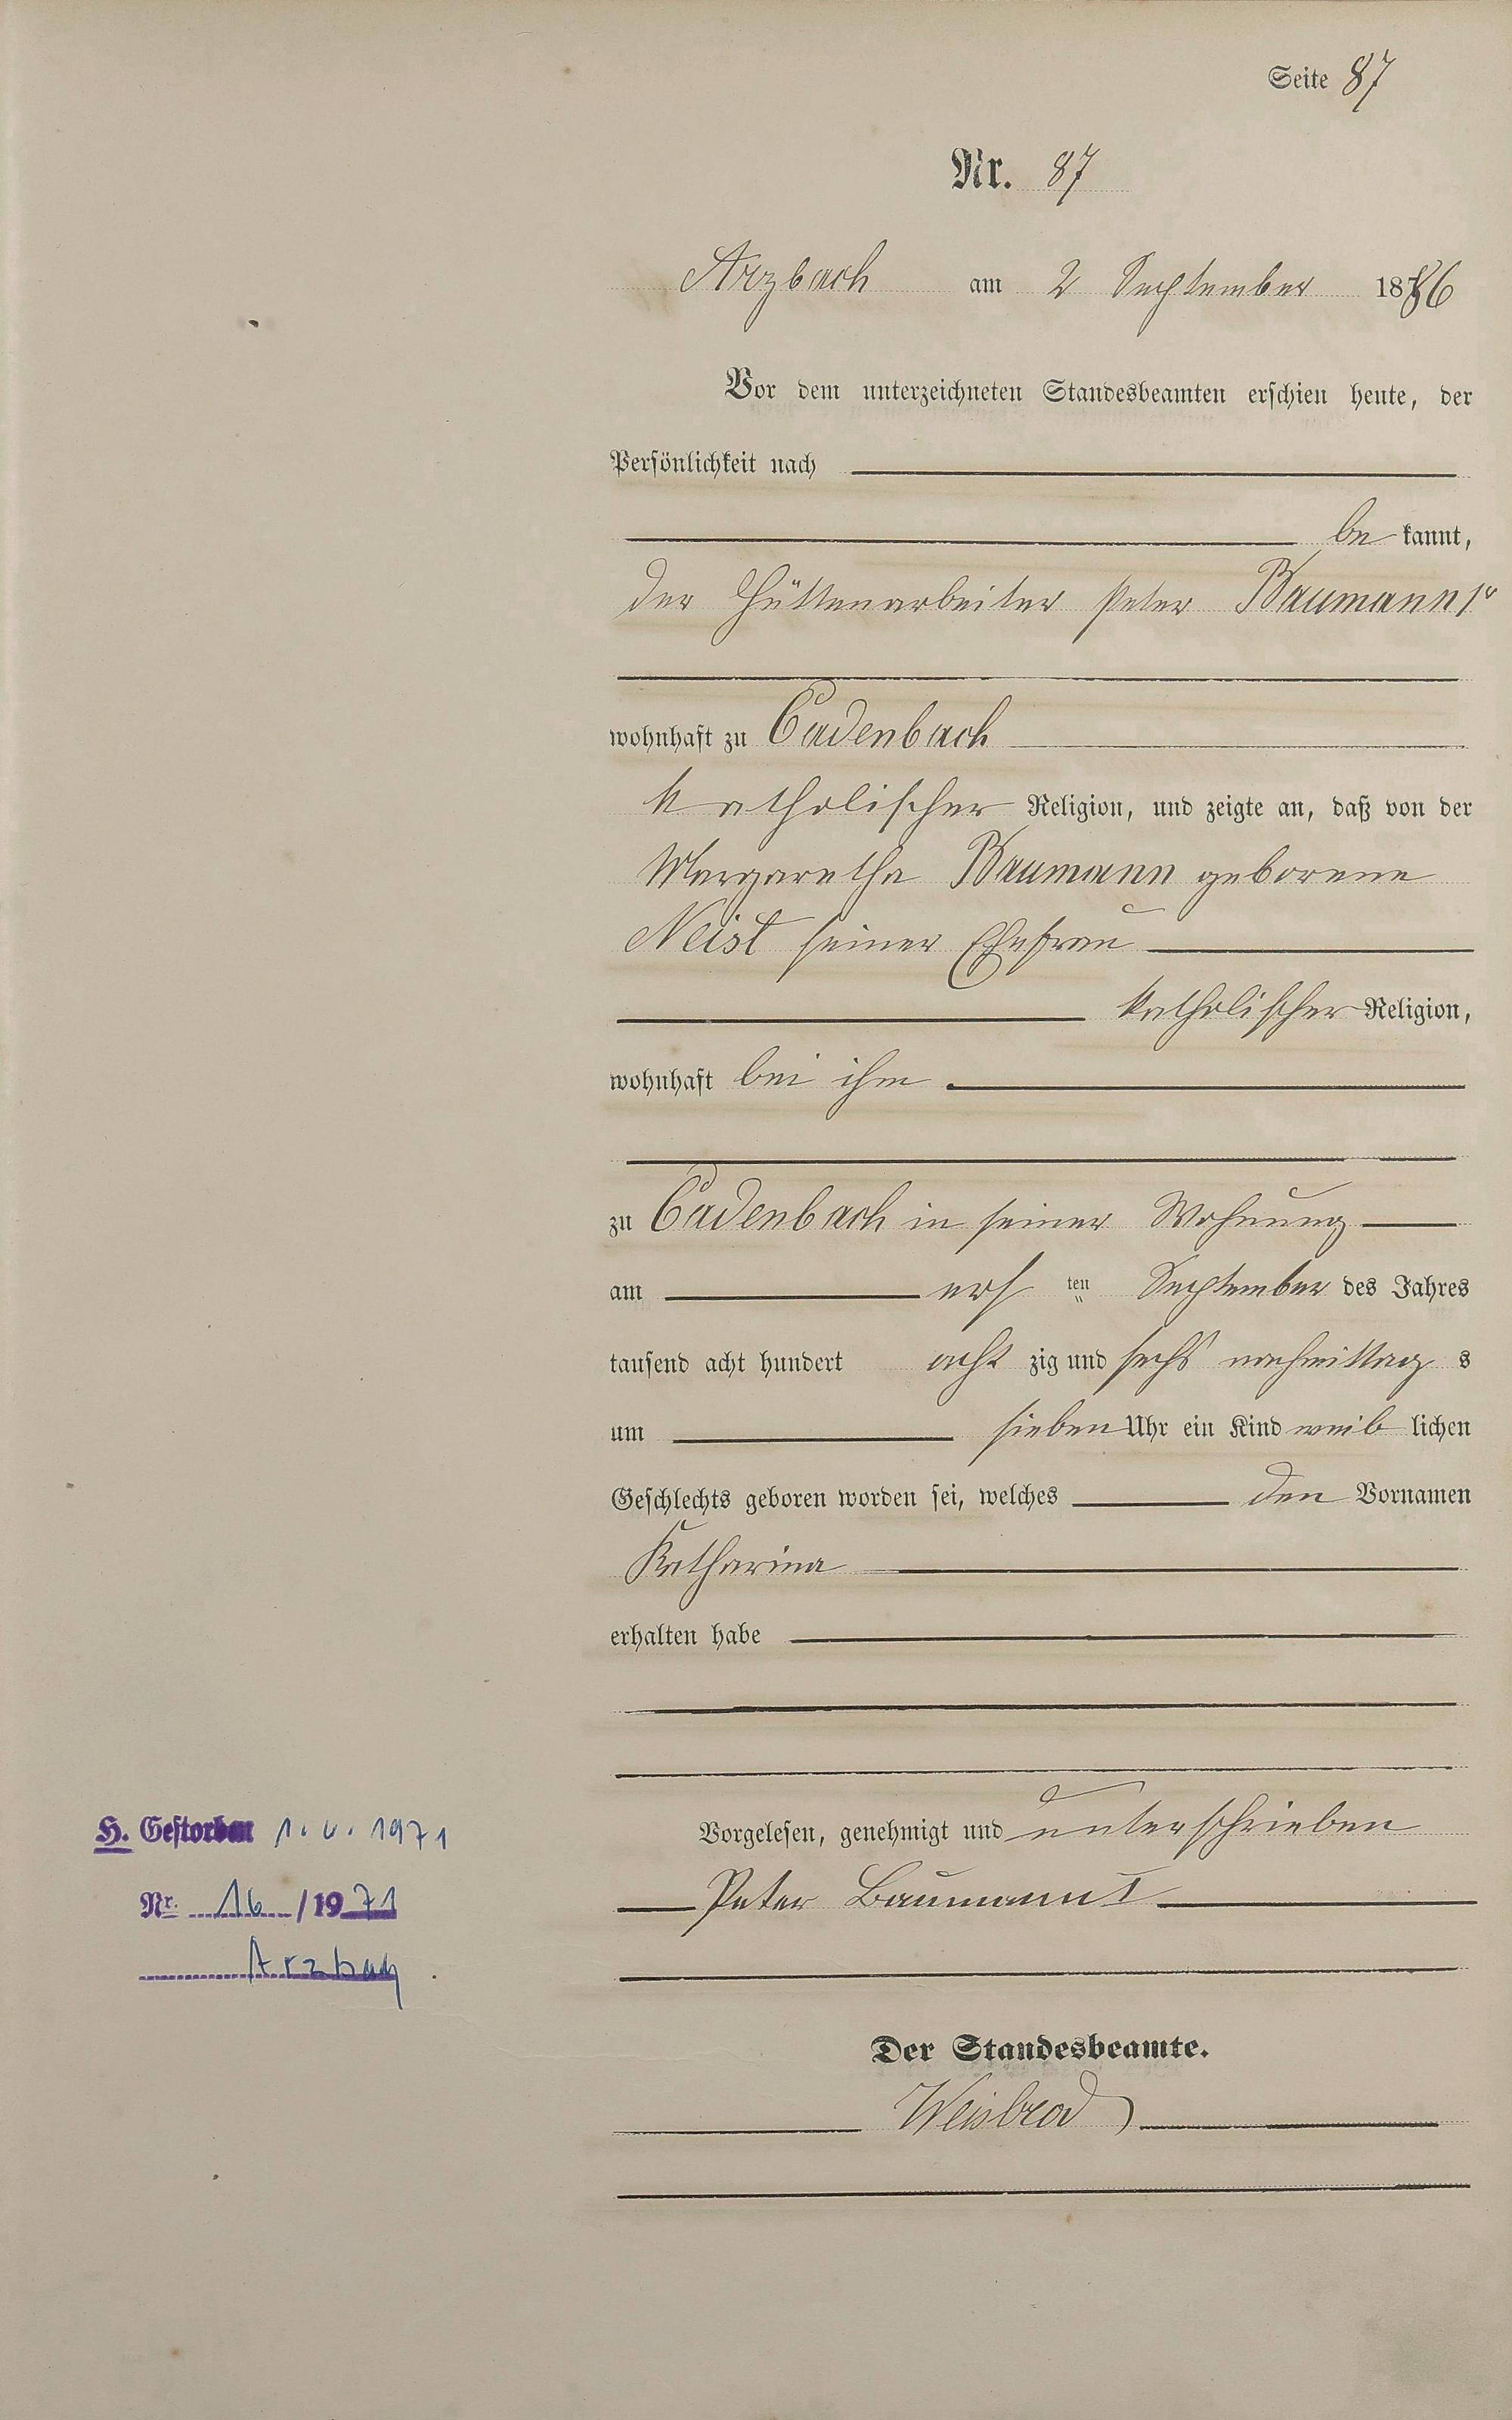 Seite 87
Nr. 87
Arzbach am 2 September 1886
Vor dem unterzeichneten Standesbeamten erschien heute, der
Persönlichkeit nach
be kannt,
der Hüttenarbeiter Peter Baumann 1r
wohnhaft zu Cadenbach
katholischer Religion, und zeigte an, daß von der
Margaretha Baumann geborene
Neist seiner Ehefrau
katholischer Religion,
wohnhaft bei ihm
zu Cadenbach in seiner Wohnung
am ers ten September des Jahres
tausend acht hundert acht zig und sechs nachmittag s
um sieben Uhr ein Kind weib lichen
Geschlechts geboren worden sei, welches den Vornamen
Katharina
erhalten habe
Vorgelesen, genehmigt und unterschrieben
Peter Baumann I
Der Standesbeamte.
Weisbrod
H. Gestorben 1. 1971
Nr. 16 / 1971
Arzbach